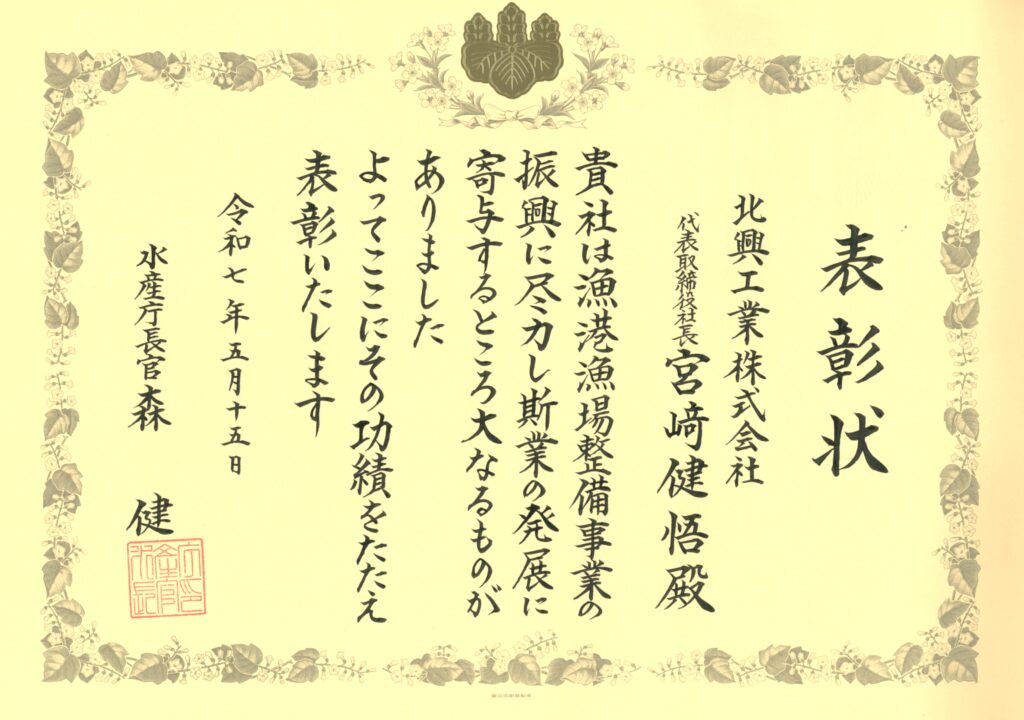 表彰状
北興工業株式会社
代表取締役社長 宮﨑健悟殿
貴社は漁港漁場整備事業の
振興に尽力し斯業の発展に
寄与するところ大なるものが
ありました
よってここにその功績をたたえ
表彰いたします
令和七年五月十五日
水産庁長官 森 健